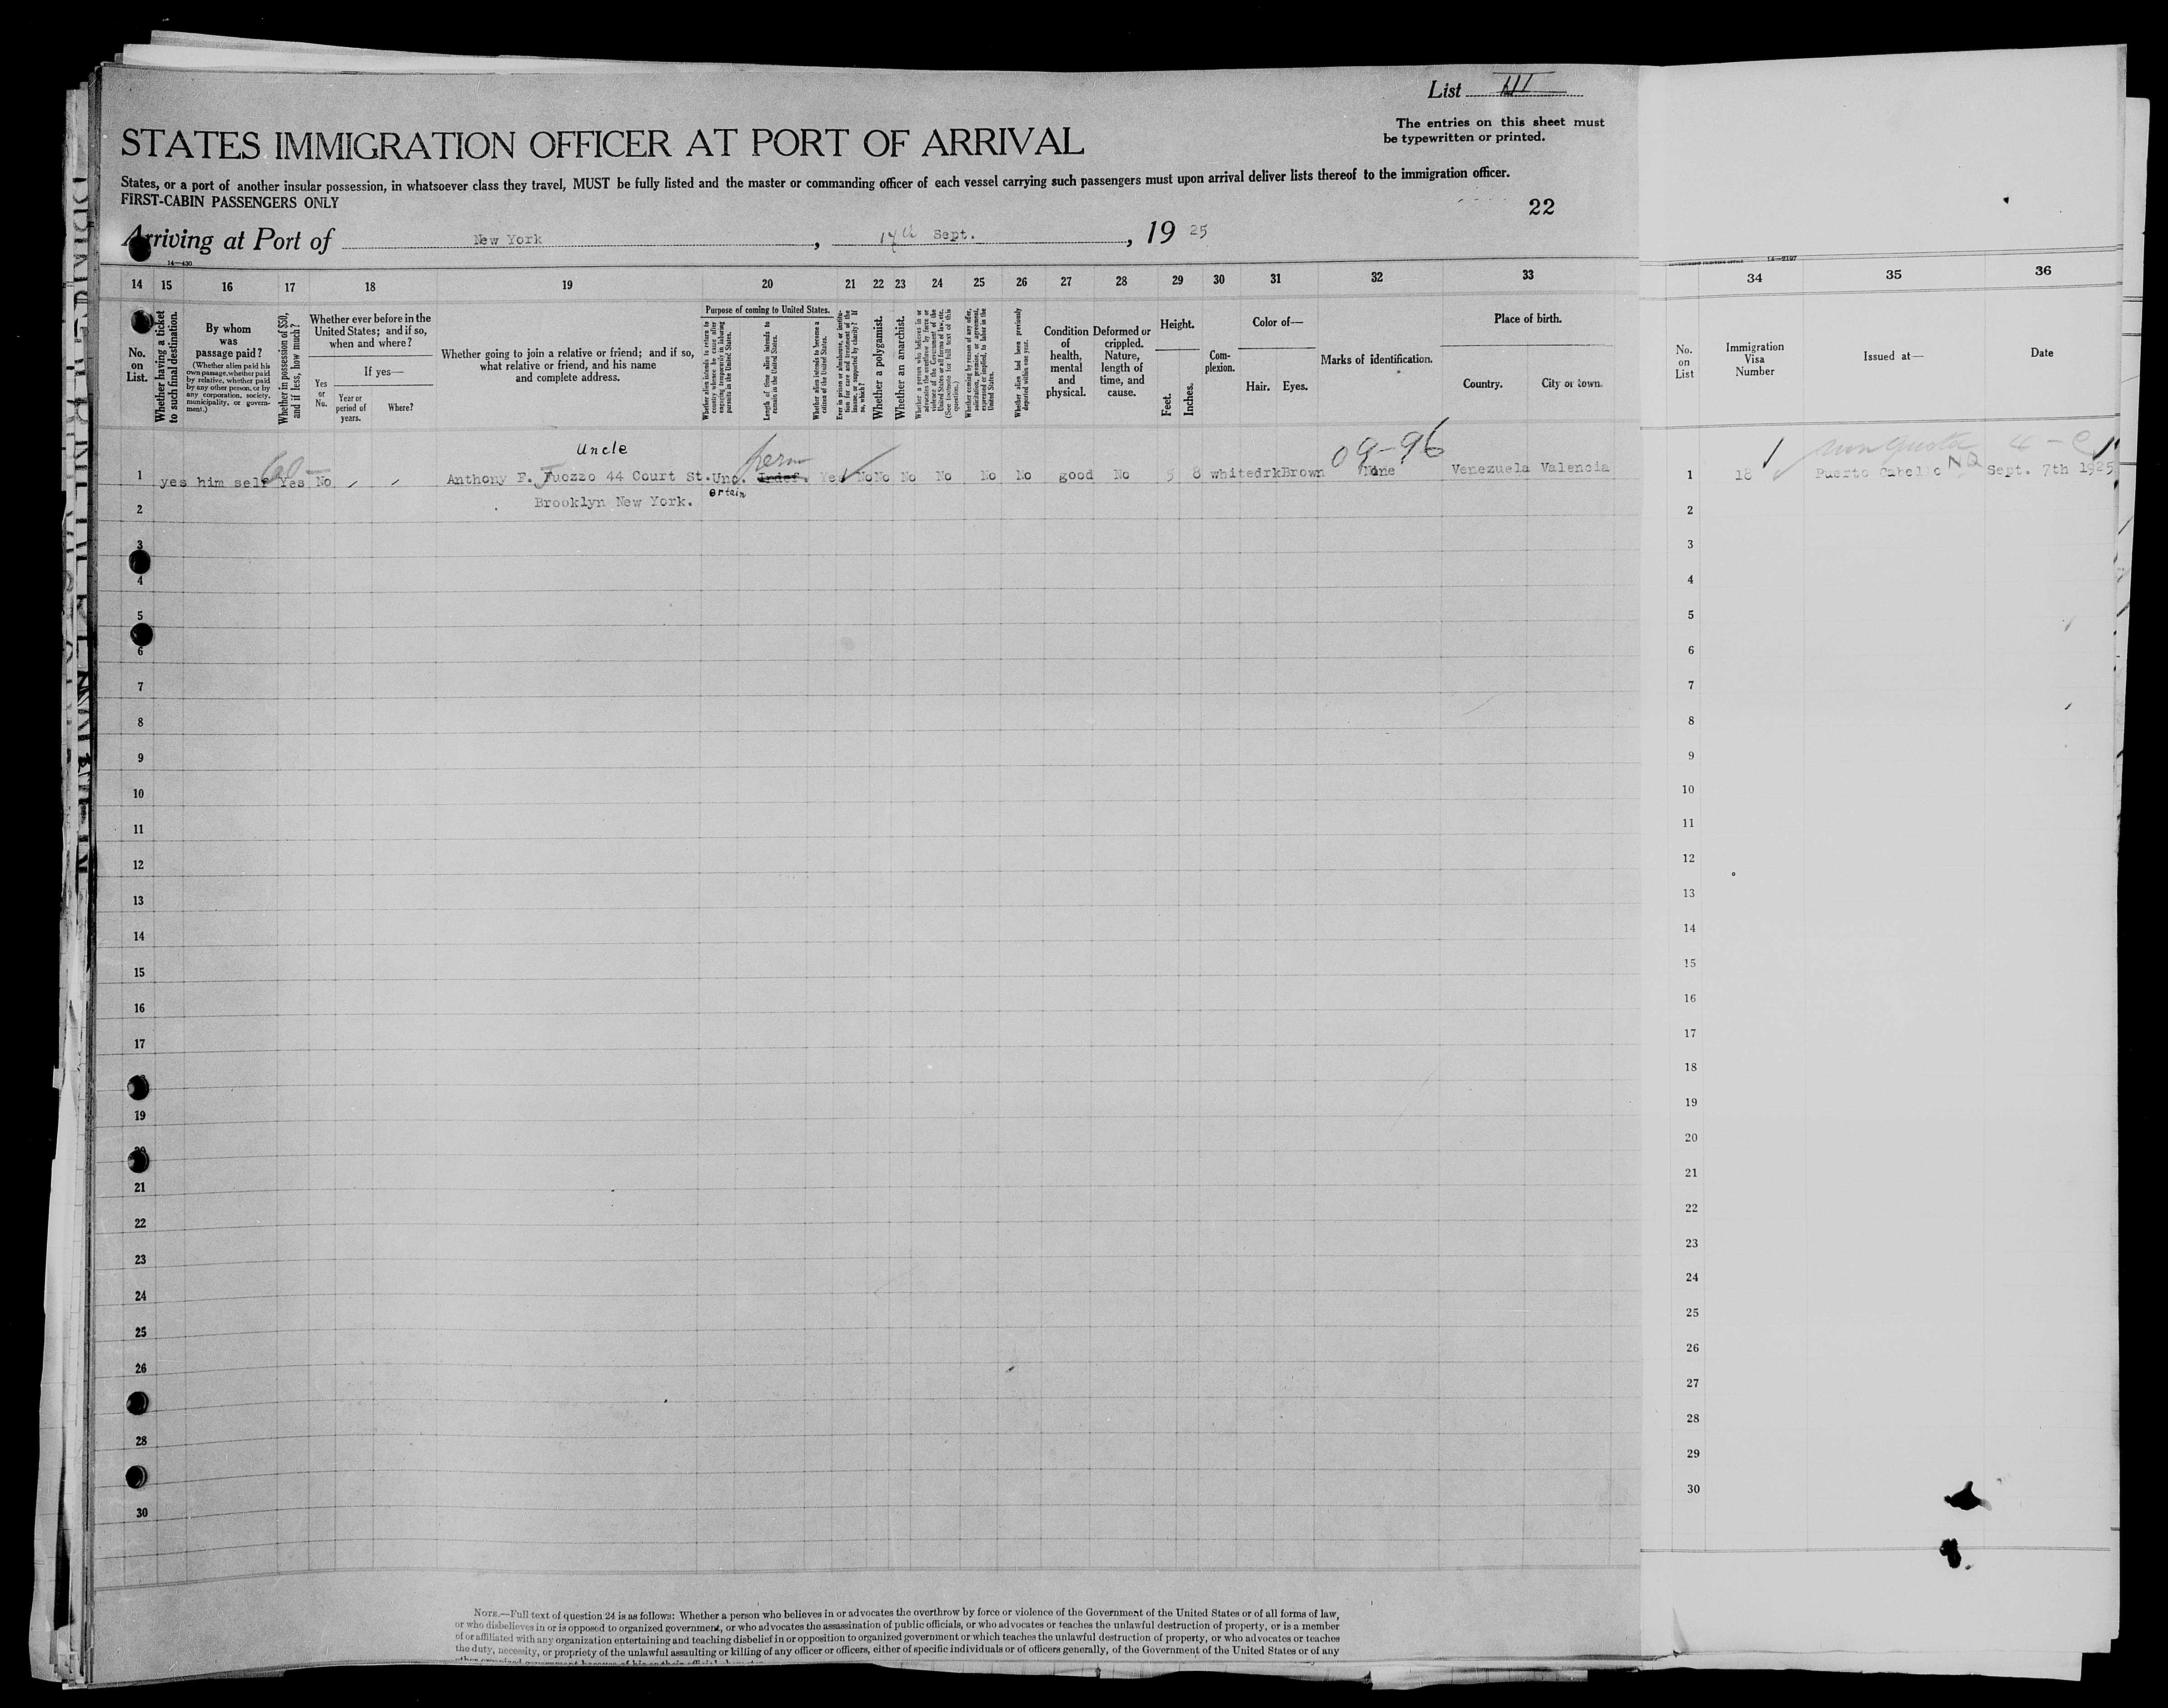 List III
The entries on this sheet must
be typewritten or printed.
STATES IMMIGRATION OFFICER AT PORT OF ARRIVAL
States, or a port of another insular possession, in whatsoever class they travel, MUST be fully listed and the master or commanding officer of each vessel carrying such passengers must upon arrival deliver lists thereof to the immigration officer.
FIRST-CABIN PASSENGERS ONLY
22
Arriving at Port of New York, 17th Sept., 19 25
14—430
14—2197
14 15 16 17 18 19 20 21 22 23 24 25 26 27 28 29 30 31 32 33 34 35 36
No. on List.
Whether having a ticket to such final destination.
By whom was passage paid?
(Whether alien paid his own passage, whether paid by relative, whether paid by any other person, or by any corporation, society, municipality, or government.)
Whether in possession of $50, and if less, how much?
Whether ever before in the United States; and if so, when and where?
Yes or No.
If yes—
Year or period of years.
Where?
Whether going to join a relative or friend; and if so, what relative or friend, and his name and complete address.
Purpose of coming to United States.
Whether alien intends to return to country whence he came after engaging temporarily in laboring pursuits in the United States.
Length of time alien intends to remain in the United States.
Whether alien intends to become a citizen of the United States.
Ever in prison or almshouse, or institution for care and treatment of the insane, or supported by charity? If so, which?
Whether a polygamist.
Whether an anarchist.
Whether a person who believes in or advocates the overthrow by force or violence of the Government of the United States or all forms of law, etc. (See footnote for full text of this question.)
Whether coming by reason of any offer, solicitation, promise, or agreement, expressed or implied, to labor in the United States.
Whether alien had been previously deported within one year.
Condition of health, mental and physical.
Deformed or crippled. Nature, length of time, and cause.
Height.
Feet. Inches.
Complexion.
Color of—
Hair. Eyes.
Marks of identification.
Place of birth.
Country. City or town.
No. on List
Immigration Visa Number
Issued at—
Date
Uncle
perm
09-96
1 yes him self Yes No Anthony F. Tuozzo 44 Court St. Unc. Indef. Yes No No No No No No good No 5 8 white drk Brown None Venezuela Valencia 1 18 Puerto Cabello Sept. 7th 1925
ertain
2 Brooklyn New York. 2
3 3
4 4
5 5
6 6
7 7
8 8
9 9
10 10
11 11
12 12
13 13
14 14
15 15
16 16
17 17
18
19 19
20
21 21
22 22
23 23
24 24
25 25
26 26
27
28 28
29
30 30
NOTE.—Full text of question 24 is as follows: Whether a person who believes in or advocates the overthrow by force or violence of the Government of the United States or of all forms of law,
or who disbelieves in or is opposed to organized government, or who advocates the assassination of public officials, or who advocates or teaches the unlawful destruction of property, or is a member
of or affiliated with any organization entertaining and teaching disbelief in or opposition to organized government or which teaches the unlawful destruction of property, or who advocates or teaches
the duty, necessity, or propriety of the unlawful assaulting or killing of any officer or officers, either of specific individuals or of officers generally, of the Government of the United States or of any